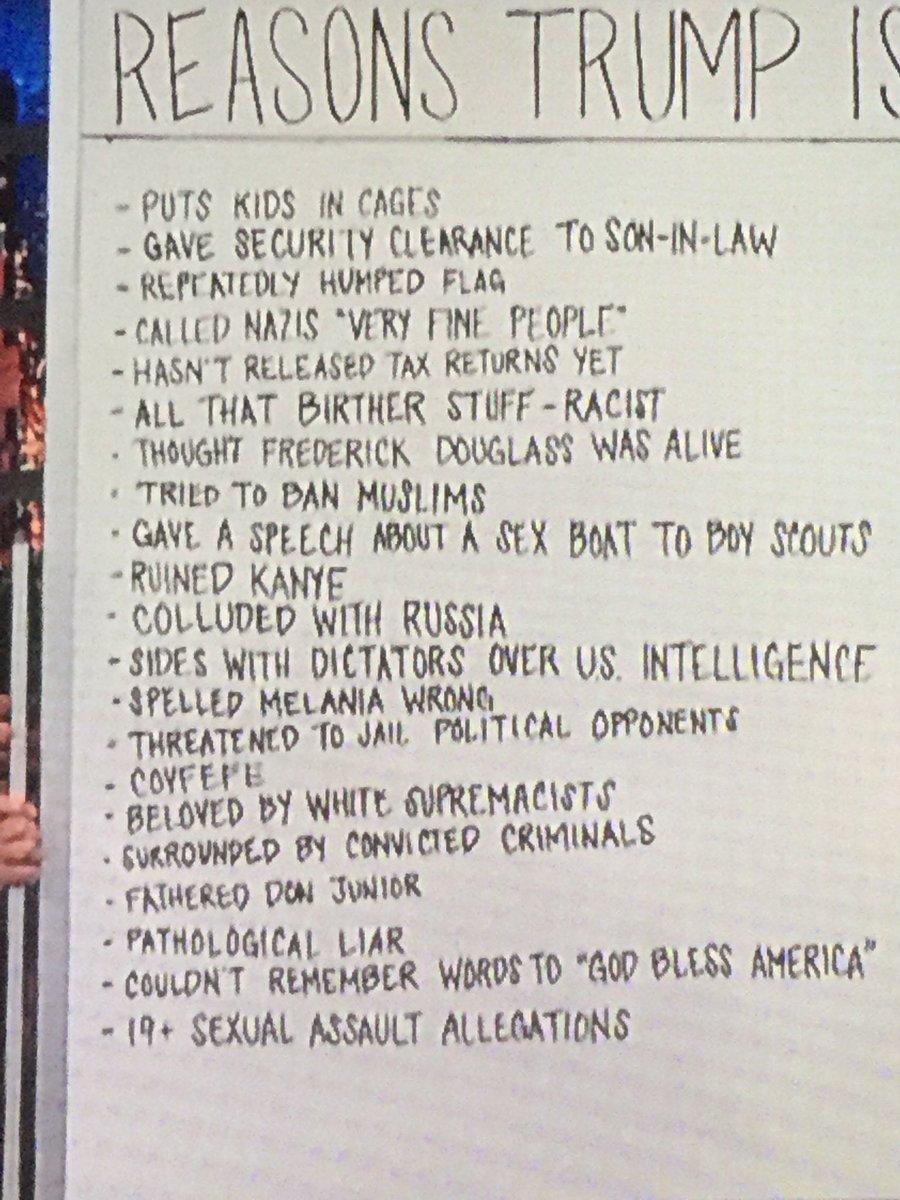 REASONS TRUMP IS
- PUTS KIDS IN CAGES
- GAVE SECURITY CLEARANCE TO SON-IN-LAW
- REPEATEDLY HUMPED FLAG
- CALLED NAZIS "VERY FINE PEOPLE"
- HASN'T RELEASED TAX RETURNS YET
- ALL THAT BIRTHER STUFF - RACIST
- THOUGHT FREDERICK DOUGLASS WAS ALIVE
- TRIED TO BAN MUSLIMS
- GAVE A SPEECH ABOUT A SEX BOAT TO BOY SCOUTS
- RUINED KANYE
- COLLUDED WITH RUSSIA
- SIDES WITH DICTATORS OVER U.S. INTELLIGENCE
- SPELLED MELANIA WRONG
- THREATENED TO JAIL POLITICAL OPPONENTS
- COVFEFE
- BELOVED BY WHITE SUPREMACISTS
- SURROUNDED BY CONVICTED CRIMINALS
- FATHERED DON JUNIOR
- PATHOLOGICAL LIAR
- COULDN'T REMEMBER WORDS TO "GOD BLESS AMERICA"
- 19+ SEXUAL ASSAULT ALLEGATIONS